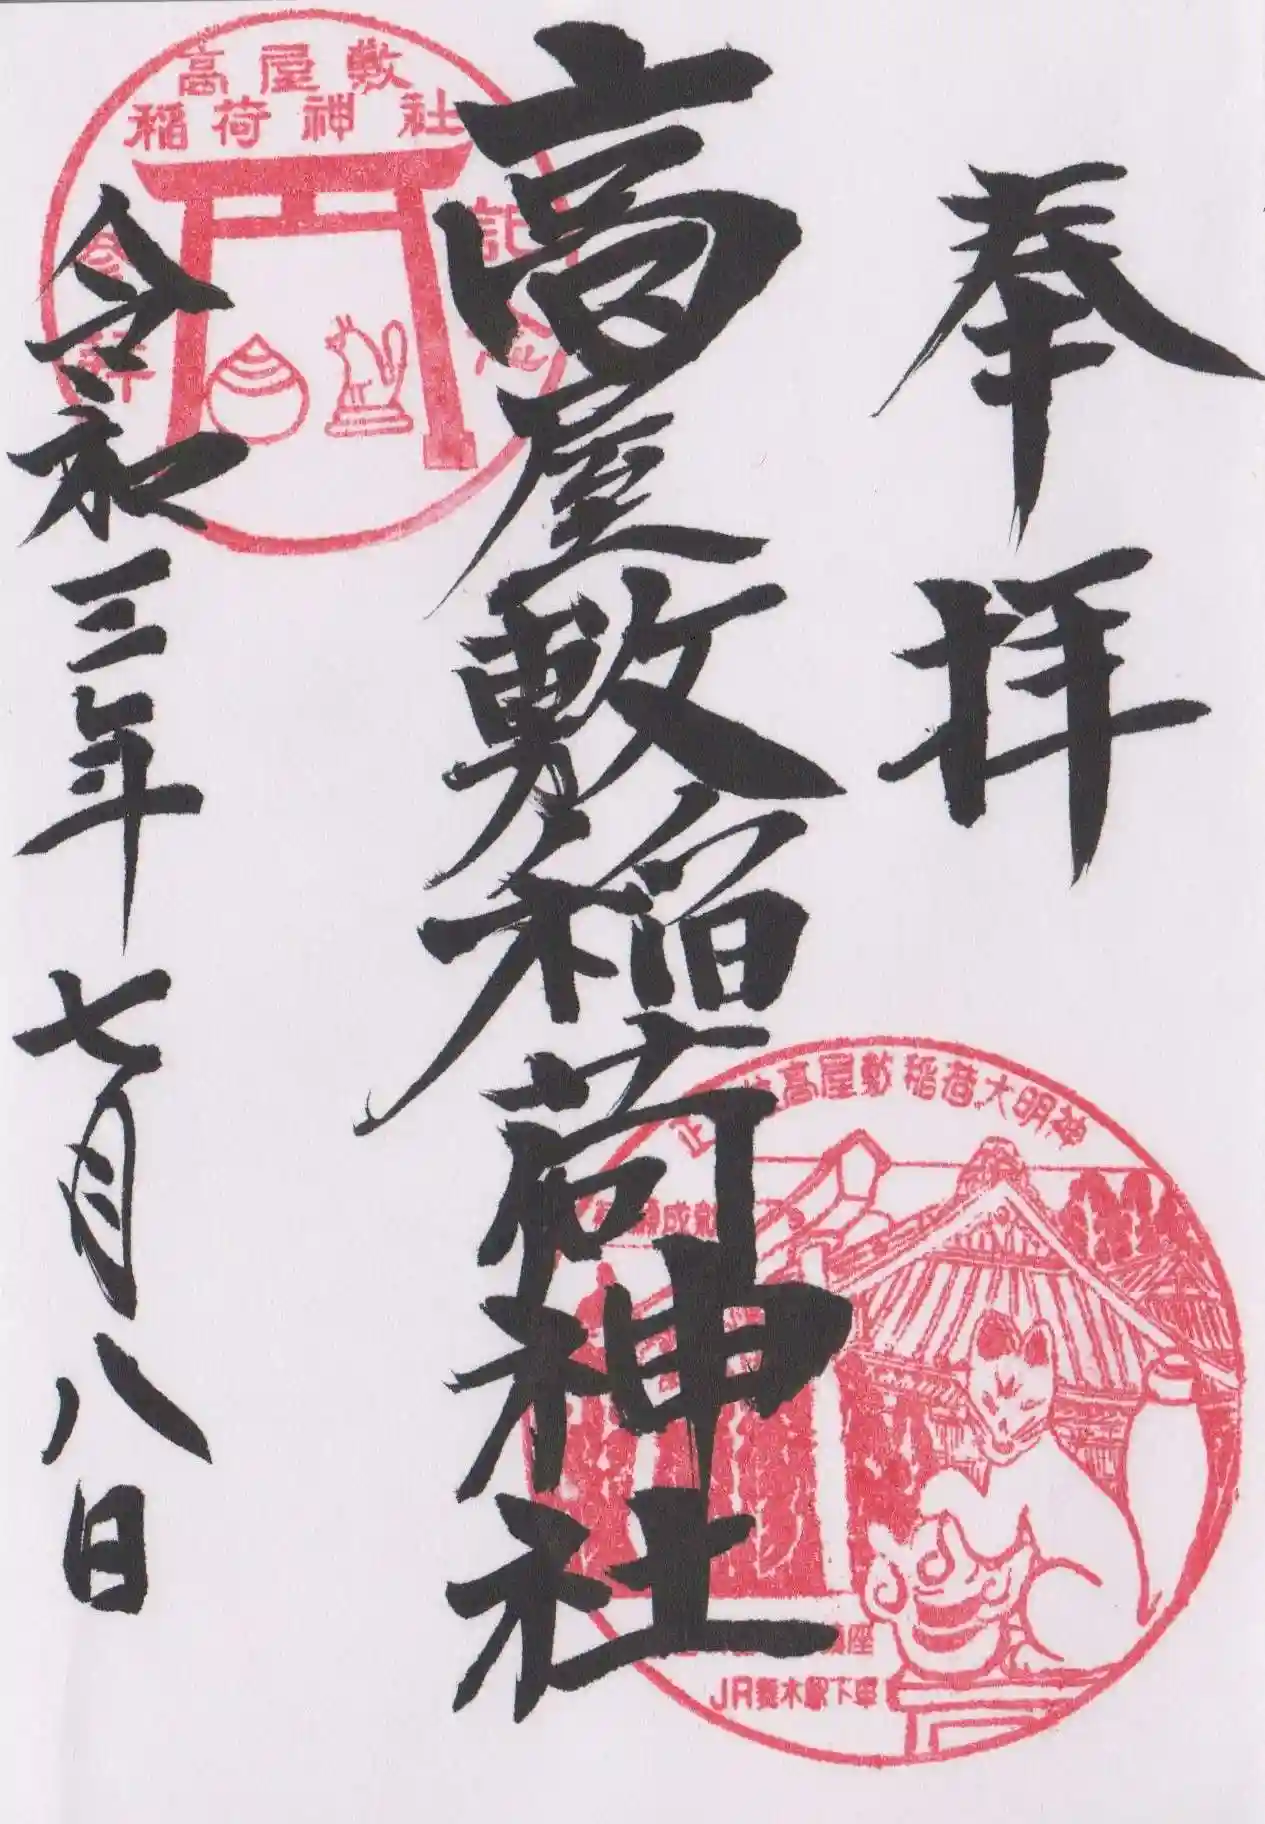 奉拝
高屋敷稲荷神社
令和三年 七月八日
高屋敷
稲荷神社
記念
高屋敷稲荷大明神
座
JR養木駅下車